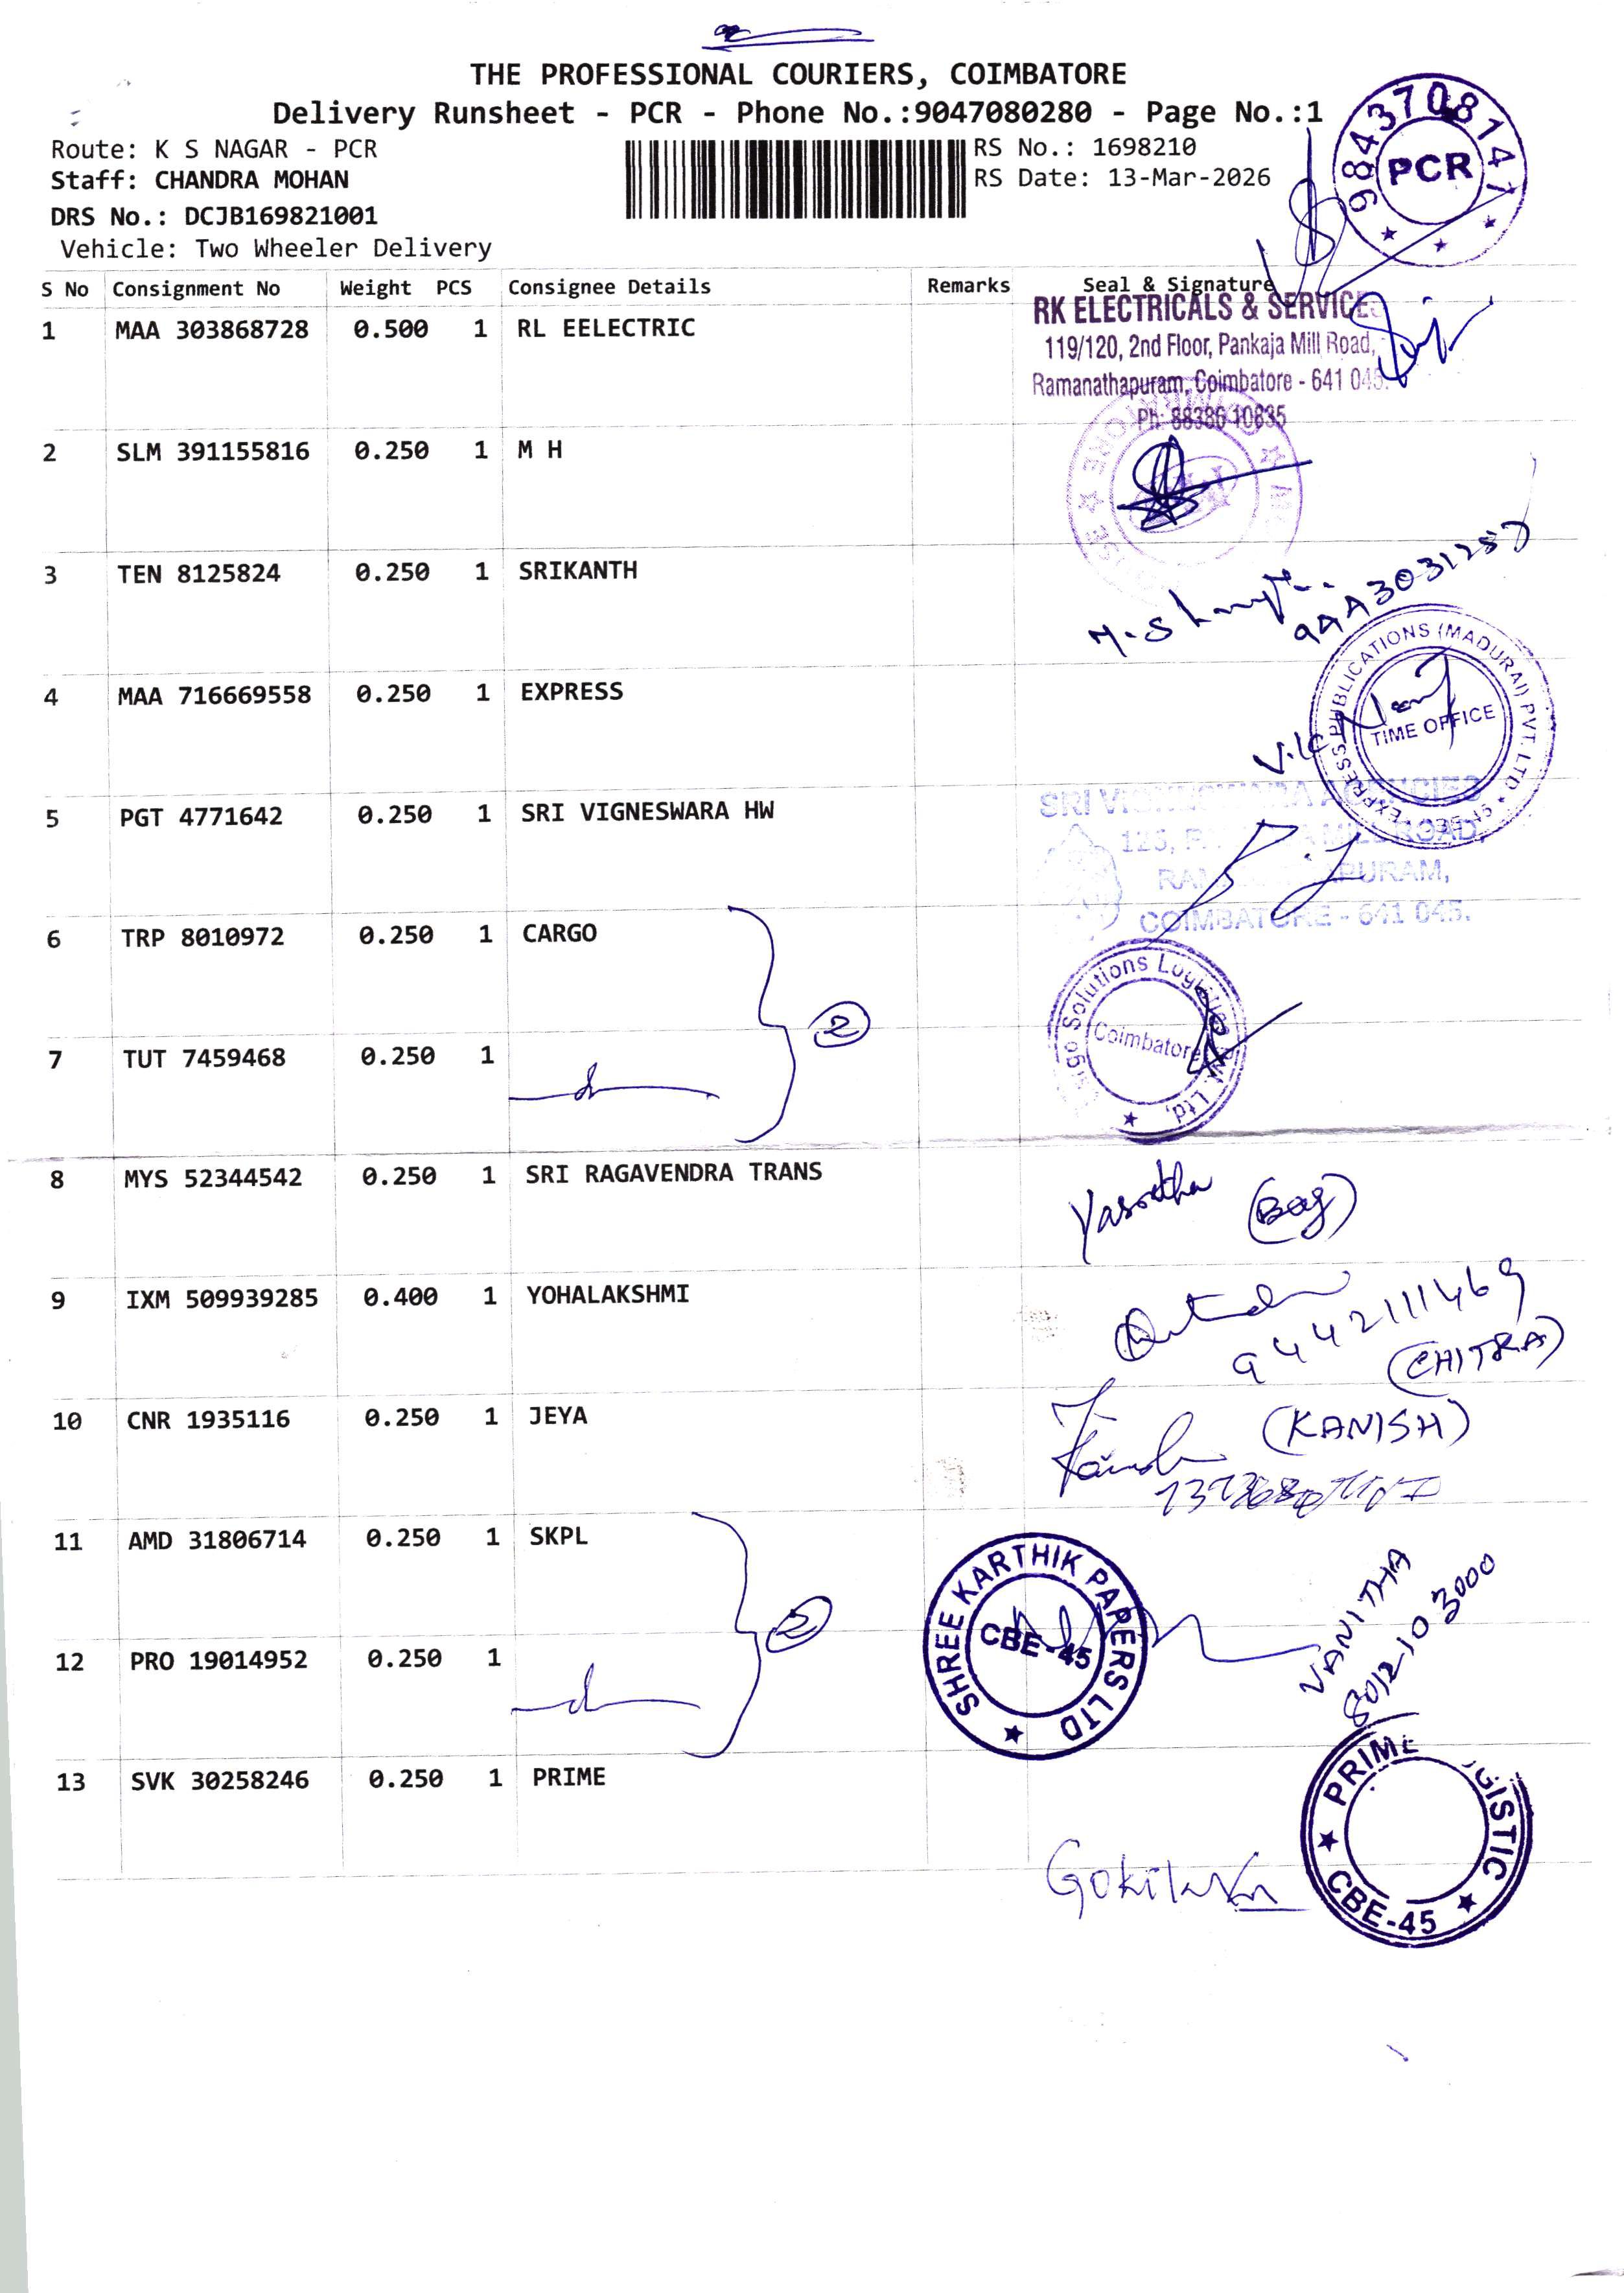 THE PROFESSIONAL COURIERS, COIMBATORE
Delivery Runsheet - PCR - Phone No.:9047080280 - Page No.:1
Route: K S NAGAR - PCR
Staff: CHANDRA MOHAN
DRS No.: DCJB169821001
Vehicle: Two Wheeler Delivery
RS No.: 1698210
RS Date: 13-Mar-2026
9843708147
PCR
S No Consignment No Weight PCS Consignee Details Remarks Seal & Signature
1 MAA 303868728 0.500 1 RL EELECTRIC
RK ELECTRICALS & SERVICE
119/120, 2nd Floor, Pankaja Mill Road,
Ramanathapuram, Coimbatore - 641 045.
Ph: 88386 10835
2 SLM 391155816 0.250 1 M H
3 TEN 8125824 0.250 1 SRIKANTH
4 MAA 716669558 0.250 1 EXPRESS
EXPRESS PUBLICATIONS (MADURAI) PVT. LTD
TIME OFFICE
5 PGT 4771642 0.250 1 SRI VIGNESWARA HW
SRI VIGNESWARA AGENCIES
125, MILL ROAD,
COIMBATORE - 641 045.
6 TRP 8010972 0.250 1 CARGO
2
Solutions Logistics Pvt. Ltd.
Coimbatore
7 TUT 7459468 0.250 1
8 MYS 52344542 0.250 1 SRI RAGAVENDRA TRANS
Yasodha (Bag)
9 IXM 509939285 0.400 1 YOHALAKSHMI
9442111469
(CHITRA)
10 CNR 1935116 0.250 1 JEYA
(KANISH)
11 AMD 31806714 0.250 1 SKPL
2
SHREE KARTHIK PAPERS LTD
CBE-45
VANITHA
80122 10 3000
12 PRO 19014952 0.250 1
13 SVK 30258246 0.250 1 PRIME
PRIME LOGISTIC
CBE-45